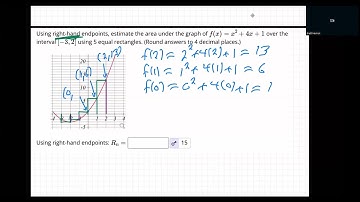 Using right-hand endpoints, estimate the area under the graph of f(x) = x² + 4x + 1 over the
interval [−3, 2] using 5 equal rectangles. (Round answers to 4 decimal places.)
f(2) = 2² + 4(2) + 1 = 13
f(1) = 1² + 4(1) + 1 = 6
f(0) = 0² + 4(0) + 1 = 1
20
(2, 13)
(1, 6)
(0,
-5
Using right-hand endpoints: Rₙ =
15